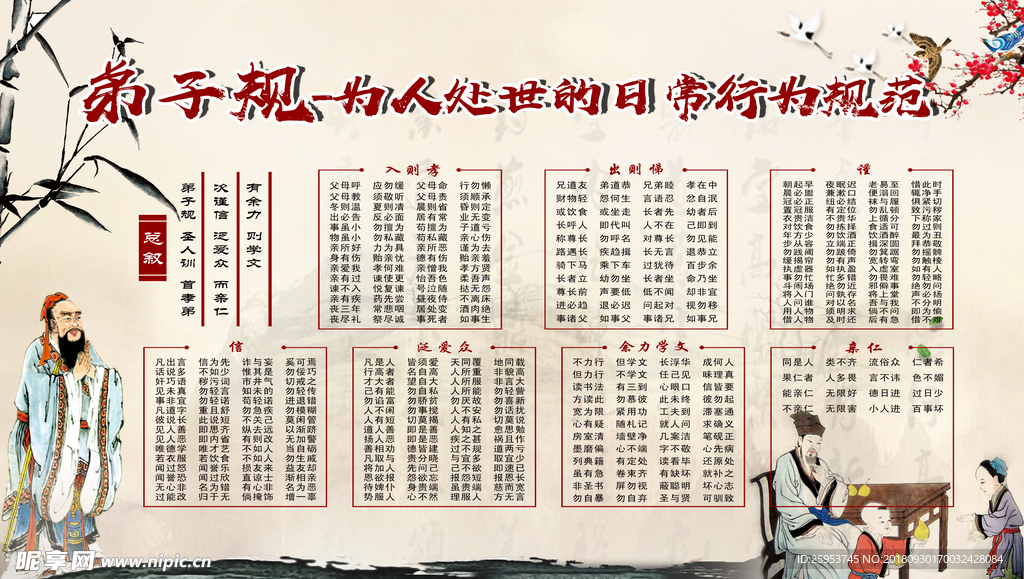 弟子规-为人处世的日常行为规范
总叙
弟子规 圣人训 首孝弟
次谨信 泛爱众 而亲仁
有余力 则学文
入则孝
父母呼 应勿缓 父母命 行勿懒
父母教 须敬听 父母责 须顺承
冬则温 夏则凊 晨则省 昏则定
出必告 反必面 居有常 业无变
事虽小 勿擅为 苟擅为 子道亏
物虽小 勿私藏 苟私藏 亲心伤
亲所好 力为具 亲所恶 谨为去
身有伤 贻亲忧 德有伤 贻亲羞
亲爱我 孝何难 亲憎我 孝方贤
亲有过 谏使更 怡吾色 柔吾声
谏不入 悦复谏 号泣随 挞无怨
亲有疾 药先尝 昼夜侍 不离床
丧三年 常悲咽 居处变 酒肉绝
丧尽礼 祭尽诚 事死者 如事生
出则悌
兄道友 弟道恭 兄弟睦 孝在中
财物轻 怨何生 言语忍 忿自泯
或饮食 或坐走 长者先 幼者后
长呼人 即代叫 人不在 己即到
称尊长 勿呼名 对尊长 勿见能
路遇长 疾趋揖 长无言 退恭立
骑下马 乘下车 过犹待 百步余
长者立 幼勿坐 长者坐 命乃坐
尊长前 声要低 低不闻 却非宜
进必趋 退必迟 问起对 视勿移
事诸父 如事父 事诸兄 如事兄
谨
朝起早 夜眠迟 老易至 惜此时
晨必盥 兼漱口 便溺回 辄净手
冠必正 纽必结 袜与履 俱紧切
置冠服 有定位 勿乱顿 致污秽
衣贵洁 不贵华 上循分 下称家
对饮食 勿拣择 食适可 勿过则
年方少 勿饮酒 饮酒醉 最为丑
步从容 立端正 揖深圆 拜恭敬
勿践阈 勿跛倚 勿箕踞 勿摇髀
缓揭帘 勿有声 宽转弯 勿触棱
执虚器 如执盈 入虚室 如有人
事勿忙 忙多错 勿畏难 勿轻略
斗闹场 绝勿近 邪僻事 绝勿问
将入门 问孰存 将上堂 声必扬
人问谁 对以名 吾与我 不分明
用人物 须明求 倘不问 即为偷
借人物 及时还 后有急 借不难
信
凡出言 信为先 诈与妄 奚可焉
话说多 不如少 惟其是 勿佞巧
奸巧语 秽污词 市井气 切戒之
见未真 勿轻言 知未的 勿轻传
事非宜 勿轻诺 苟轻诺 进退错
凡道字 重且舒 勿急疾 勿模糊
彼说长 此说短 不关己 莫闲管
见人善 即思齐 纵去远 以渐跻
见人恶 即内省 有则改 无加警
唯德学 唯才艺 不如人 当自砺
若衣服 若饮食 不如人 勿生戚
闻过怒 闻誉乐 损友来 益友却
闻誉恐 闻过欣 直谅士 渐相亲
无心非 名为错 有心非 名为恶
过能改 归于无 倘掩饰 增一辜
泛爱众
凡是人 皆须爱 天同覆 地同载
行高者 名自高 人所重 非貌高
才大者 望自大 人所服 非言大
己有能 勿自私 人所能 勿轻訾
勿谄富 勿骄贫 勿厌故 勿喜新
人不闲 勿事搅 人不安 勿话扰
人有短 切莫揭 人有私 切莫说
道人善 即是善 人知之 愈思勉
扬人恶 即是恶 疾之甚 祸且作
善相劝 德皆建 过不规 道两亏
凡取与 贵分晓 与宜多 取宜少
将加人 先问己 己不欲 即速已
恩欲报 怨欲忘 报怨短 报恩长
待婢仆 身贵端 虽贵端 慈而宽
势服人 心不然 理服人 方无言
余力学文
不力行 但学文 长浮华 成何人
但力行 不学文 任己见 昧理真
读书法 有三到 心眼口 信皆要
方读此 勿慕彼 此未终 彼勿起
宽为限 紧用功 工夫到 滞塞通
心有疑 随札记 就人问 求确义
房室清 墙壁净 几案洁 笔砚正
墨磨偏 心不端 字不敬 心先病
列典籍 有定处 读看毕 还原处
虽有急 卷束齐 有缺坏 就补之
非圣书 屏勿视 蔽聪明 坏心志
勿自暴 勿自弃 圣与贤 可驯致
亲仁
同是人 类不齐 流俗众 仁者希
果仁者 人多畏 言不讳 色不媚
能亲仁 无限好 德日进 过日少
不亲仁 无限害 小人进 百事坏
昵享网 www.nipic.cn
ID:25953745 NO:20180930170032428084